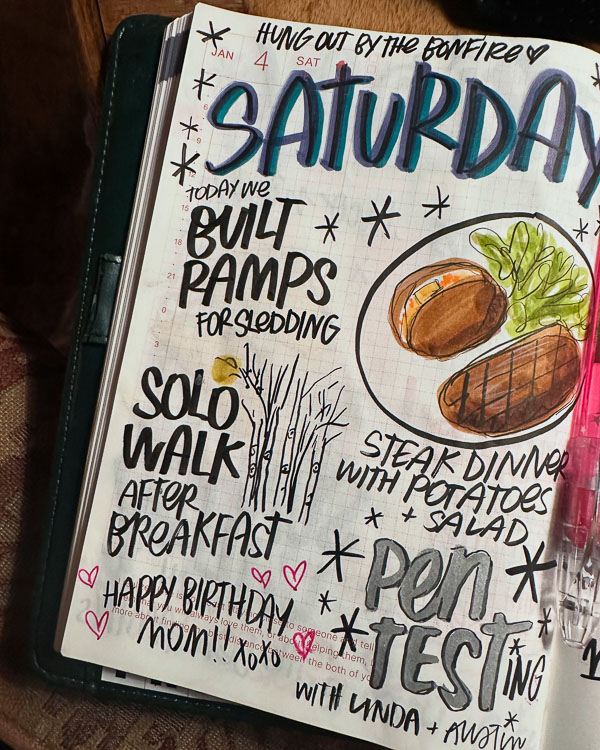 HUNG OUT BY THE BONFIRE
JAN 4 SAT
SATURDAY
TODAY WE
BUILT
RAMPS
FOR SLEDDING
6
9
15
18
21
0
3
SOLO
WALK
AFTER
BREAKFAST
STEAK DINNER
WITH POTATOES
+ SALAD
HAPPY BIRTHDAY
MOM!! XOXO
to someone and tell
you will always love them, or about helping them,
more about finding best distance between the both of
PEN
TESTING
WITH LINDA + AUSTIN